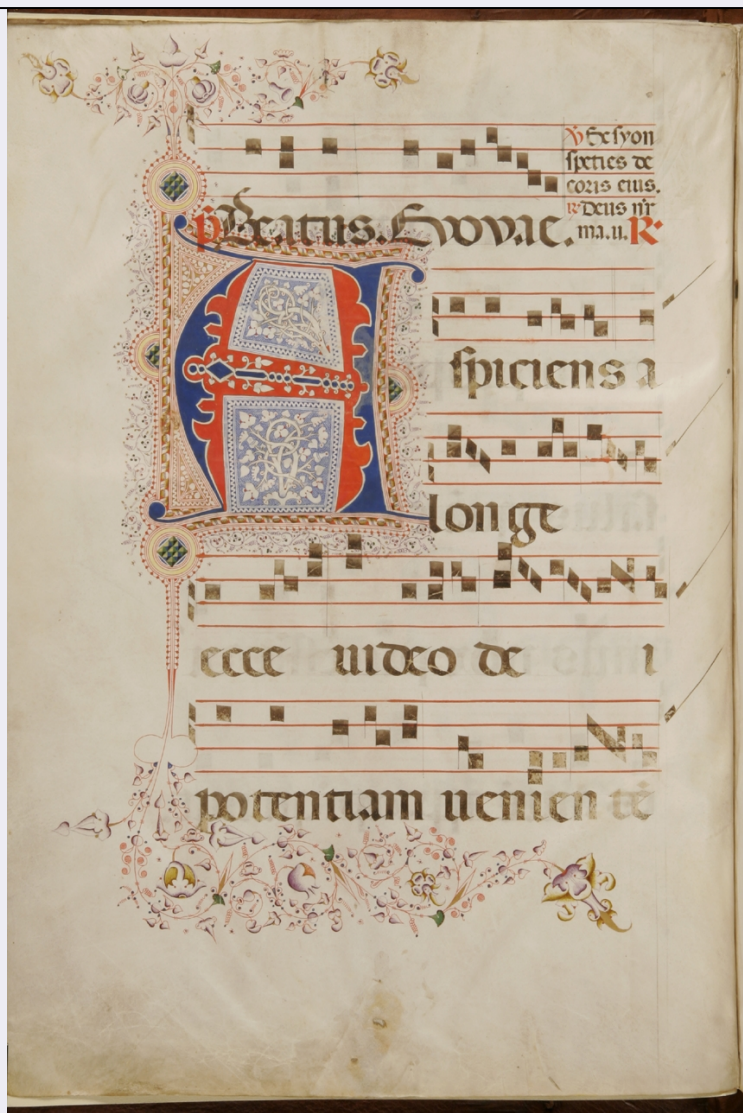 ℣ Ex syon
speties de
coris eius.
℟ Deus nr̄
p̄ Beatus. Evovae. ma. u. ℟
Aspiciens a
longe
ecce uideo de i
potentiam uenientē